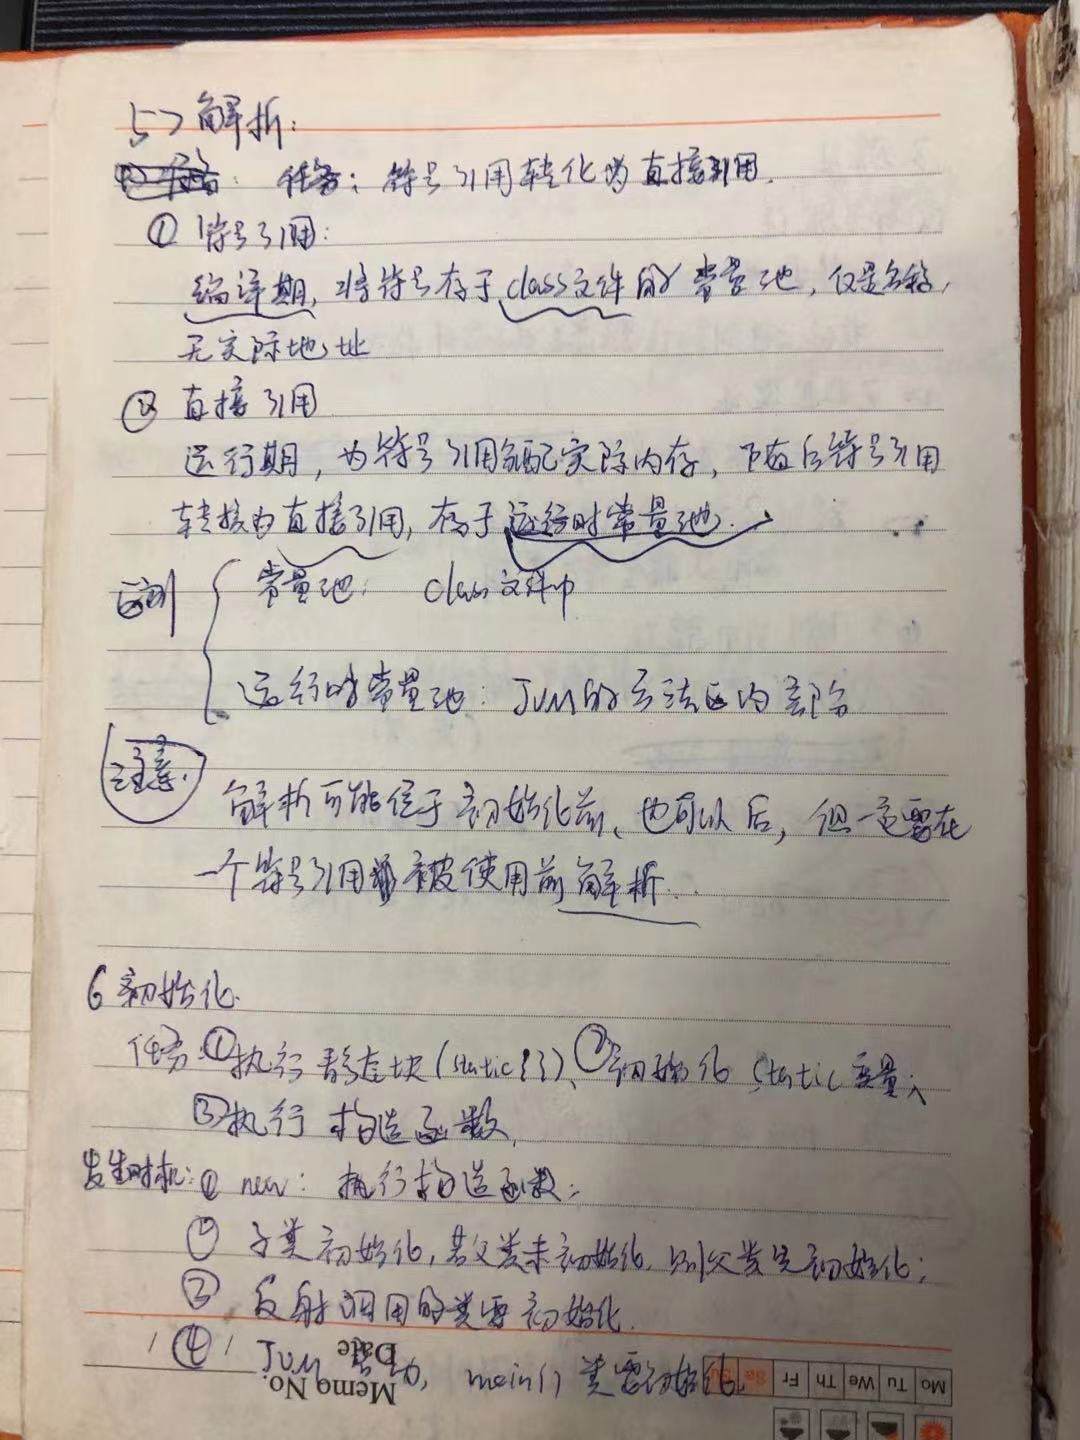 5> 解析:
任务: 符号引用转化为直接引用.
① 符号引用:
编译期, 将符号存于class文件的常量池, 仅是名称,
无实际地址
② 直接引用
运行期, 为符号引用分配实际内存, 符号引用
转换为直接引用, 存于运行时常量池.
区别
常量池: class文件中
运行时常量池: JVM的方法区内部分
注意.
解析可能位于初始化前、也可以后, 但一定要在
一个符号引用被使用前解析.
6 初始化.
任务:①执行静态块(static{})、②初始化 static变量、
③执行 构造函数.
发生时机: ① new: 执行构造函数;
② 子类初始化, 若父类未初始化, 则父类先初始化;
③ 反射调用的类要初始化.
④ JVM 启动, main()类要初始化.
Memo No.
Date
Mo Tu We Th Fr Sa Su